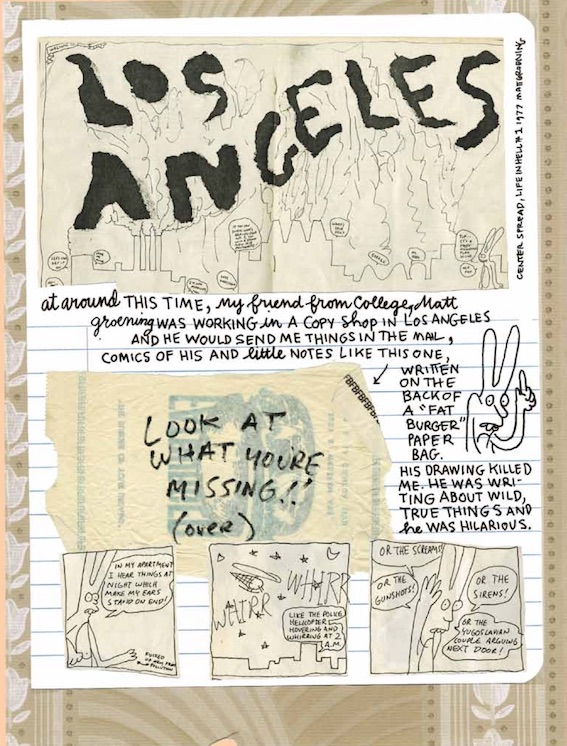 LOS
ANGELES
CENTER SPREAD, LIFE IN HELL #1 1977 MATT GROENING
at around THIS TIME, my friend from College, Matt
groening WAS WORKING in A COPY Shop IN LOS ANGELES
AND HE WOULD SEND ME THINGS IN THE MAIL,
COMICS OF HIS AND little NOTES LIKE THIS ONE,
WRITTEN
ON THE
BACK OF
A "FAT
BURGER"
PAPER
BAG.
LOOK AT
WHAT YOU'RE
MISSING!!
(over)
HIS DRAWING KILLED
ME. HE WAS WRI-
TING ABOUT WILD,
TRUE THINGS AND
he WAS HILARIOUS.
IN MY APARTMENT
I HEAR THINGS AT
NIGHT WHICH
MAKE MY EARS
STAND ON END!
WHIRR
WHIRR
LIKE THE POLICE
HELICOPTER
HOVERING AND
WHIRRING AT 2
A.M.
OR THE SCREAMS!
OR THE
GUNSHOTS!
OR THE
SIRENS!
OR THE
YUGOSLAVIAN
COUPLE ARGUING
NEXT DOOR!